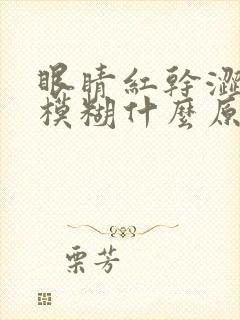 眼睛紅幹澀
模糊什麼原
栗芳